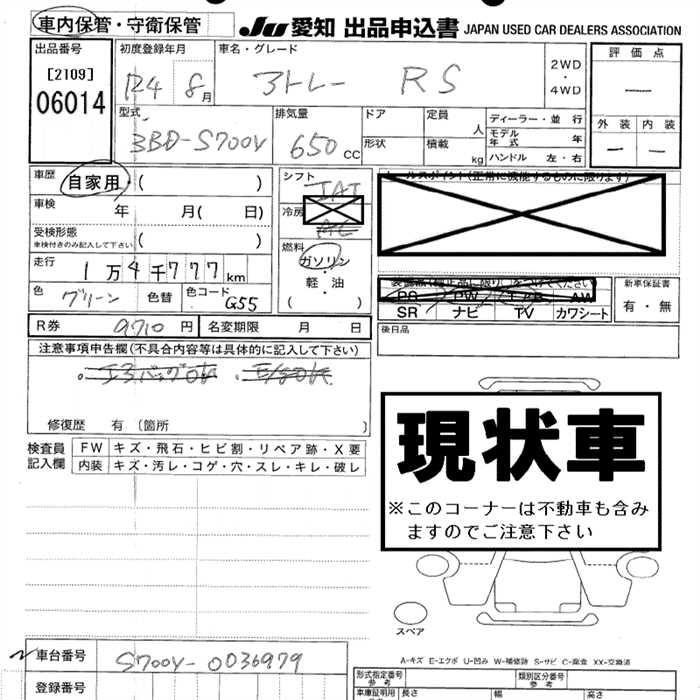 車内保管・守衛保管 JU 愛知 出品申込書 JAPAN USED CAR DEALERS ASSOCIATION
出品番号 初度登録年月 車名・グレード 評価点
[2109] R4 8月 アトレー RS 2WD・4WD
06014
型式 排気量 ドア 定員 人 ディーラー・並行 外装 内装
3BD-S700V 650cc 形状 積載 kg モデル年式 年
ハンドル 左・右
車歴 自家用・( ) シフト IAT
車検 年 月( 日) 冷房 AC
受検形態 ( )
車検付きのみ記入して下さい
燃料 ガソリン・軽油 ( )
走行 1万4千777km
色 グリーン 色替 色コード G55
新車保証書
PS PW AW
SR ナビ TV カワシート 有・無
R券 9710円 名変期限 月 日 後日品
注意事項申告欄(不具合内容等は具体的に記入して下さい)
修復歴 有 (箇所 )
現状車
※このコーナーは不動車も含みますのでご注意下さい
検査員記入欄 FW キズ・飛石・ヒビ割・リペア跡・X要
内装 キズ・汚レ・コゲ・穴・スレ・キレ・破レ
スペア
A-キズ E-エクボ U-凹み W-補修跡 S-サビ C-腐食 XX-交換済
車台番号 S700V-0036979
登録番号
形式指定番号 参考 類別区分番号 参考
車庫証明用 長さ 幅 高さ